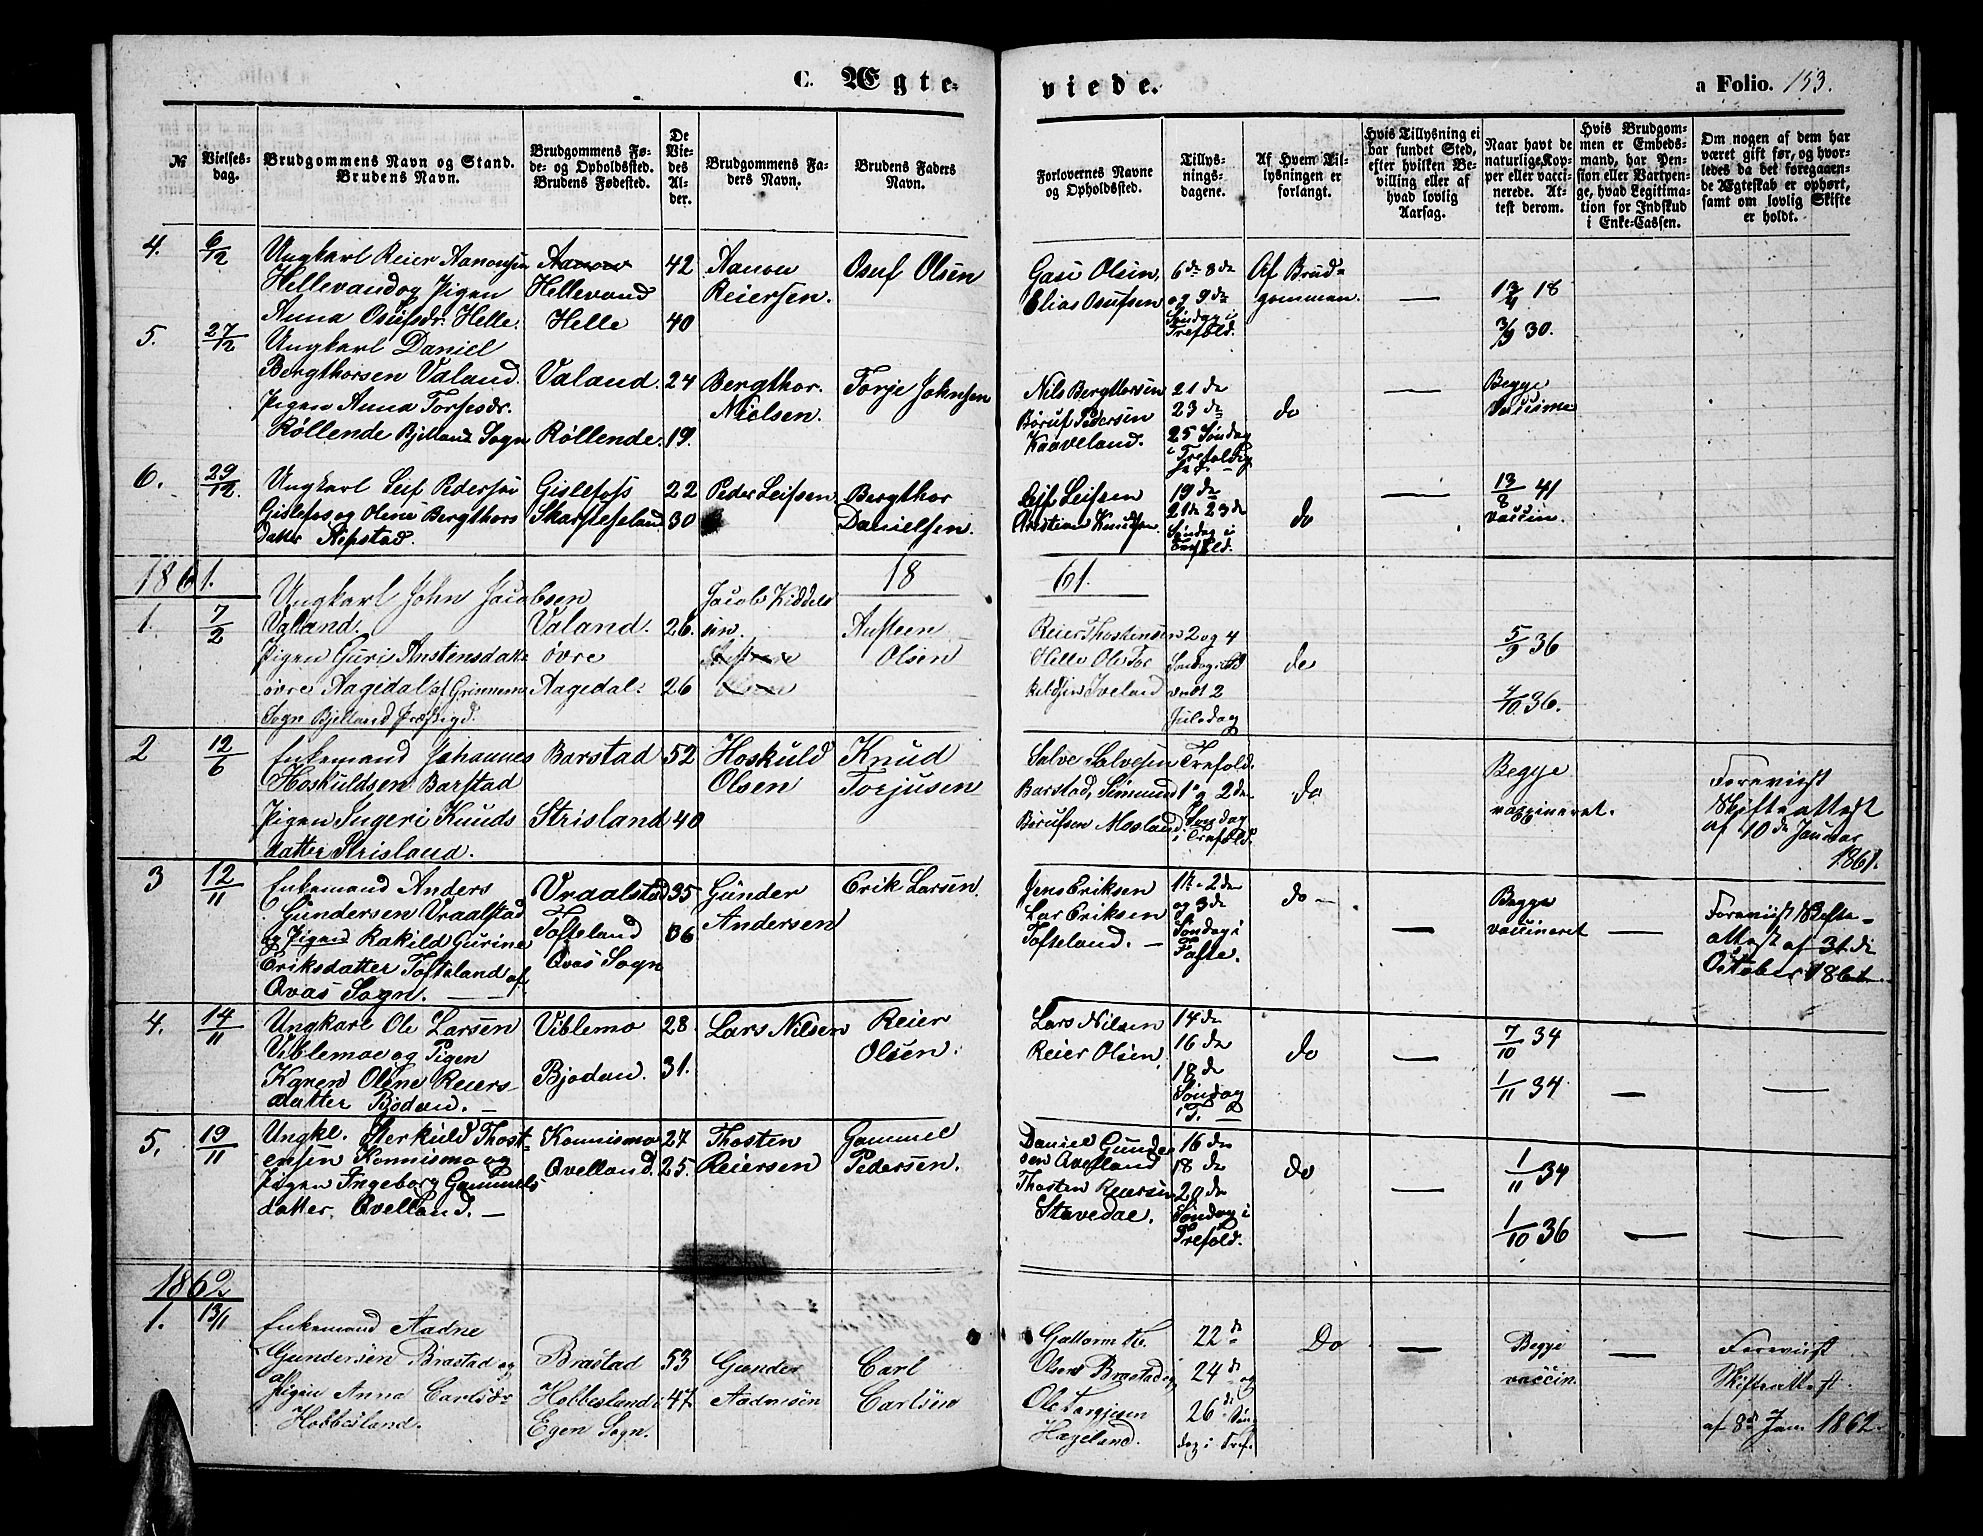 C. Ægte-
viede.
a Folio. 153.
№
Vielses-
dag.
Brudgommens Navn og Stand.
Brudens Navn.
Brudgommens Fø-
de- og Opholdssted.
Brudens Fødested.
De
Vie-
des
Al-
der.
Brudgommens Fa-
ders Navn.
Brudens Faders
Navn.
Forlovernes Navne
og Opholdssted.
Tillys-
nings-
dagene.
Af Hvem Til-
lysningen er
forlangt.
Hvis Tillysning ei
har fundet Sted,
efter hvilken Be-
villing eller af
hvad lovlig
Aarsag.
Naar havt de
naturlige Kop-
per eller vacci-
nerede. At-
test derom.
Hvis Brudgom-
men er Embeds-
mand, har Pen-
sion eller Vartpen-
ge, hvad Legitima-
tion for Indskud
i Enke-Cassen.
Om nogen af dem har
været gift før, og hvor-
ledes da det foregaaen-
de Ægteskab er ophørt,
samt om lovlig Skifte
er holdt.
4. 6/12
Ungkarl Reier Aanonsen
Hellevand og Pigen
Anna Osufsdr. Helle.
Aanon
Hellevand
Helle
42
40
Aanon
Reiersen.
Osuf Olsen
Olsen,
Elias Osufsen
6 de 8 de
og 9 de
Søndag i
Trefold.
Af Brud-
gommen.
—
18
3/9 30.
5. 27/12
Ungkarl Daniel
Bergthorsen Valand.
Pigen Anna Torjesdr.
Røllende Bjelland Sogn
Valand.
Røllende.
24
19.
Bergthor.
Nielsen.
Torje Johnsen
Nils Bergthorsen
Børuf Pedersen
Kaaveland.
21 de
23 de
25 Søndag
i Trefoldig
do
—
Begge
6. 29/12
Ungkarl Leif Pedersen
Gislefos og Olene Bergthors
datter
Gislefoss
22
30
Peder Leifsen
Bergthor
Danielsen.
Leif Leifsen
Christian Knudsen
19 de
21 de 23 de
Søndag i
Trefold.
do
—
13/8 41
vaccin.
1861.
18
61.
1. 7/2
Ungkarl John Jacobsen
Valand.
Pigen Guri Anstensdatt
øvre Aagedal af Grinnem
Sogn Bjelland Præstgd.
Valand.
øvre
Aagedal.
26.
26
Jacob Kiddels
sen.
Austeen
Olsen
Reier Thostensen
Helle Ole Tor
kildsen Iveland
2 og 4
Søndag i Ad
vent 2
Juledag
do
5/9 36
36.
2 12/6
Enkemand Johannes
Hoskuldsen Barstad
Pigen Ingeri Knuds
datter Strisland.
Barstad
Strisland
52
40
Hoskuld
Olsen
Knud
Torjusen
Salve Salvesen
Barstad, Simund
Børufsen Mosland
Trefold.
1 og 2 de
Søndag
i Trefold.
do
Begge
vaccineret.
Foreviist
Skifteattest
af 10 de Januar
1861.
3 12/11
Enkemand Anders
Gundersen Vraalstad
og Pigen Rakild Gurine
Eriksdatter Tofteland af
Øvas Sogn. —
Vraalstad
Tofteland
Øvas Sogn
35
36
Gunder
Andersen
Erik Larsen.
Jens Eriksen
Lar Eriksen
Tofteland. —
2 de
og 3 de
Søndag i
Faste.
do —
—
Begge
vaccineret
—
Foreviist Skifte-
attest af 31 de
October 1861.
4. 14/11
Ungkarl Ole Larsen
Viblemoe og Pigen
Karen Olene Reiers-
datter Bjodan. —
Viblemo
Bjodan.
28.
31.
Lars Nilsen
Reier
Olsen.
Lars Nilsen
Reier Olsen
14 de
16 de
18 de
Søndag
i T.
do
—
7/10 34
1/11 34
—
—
5. 19/11
Ungkl. Sterkuld Thost-
ensen Konnismo og
Pigen Ingeborg Gammels
datter. Øvelland. —
Konnismo
Øvelland.
27
25.
Thosten
Reiersen
Gammel
Pedersen.
Daniel Gunder
sen Øvelland
Thosten Reiersen
Stavedal.
16 de
18 de
20 de
Søndag i
Trefold.
do
—
1/11 34
1/10 36
—
—
1862
1. 13/11
Enkemand Aadne
Gundersen Brastad og
Pigen Anna Carlsdr
Hobbesland.
Brastad
Hobbesland i
Egen Sogn.
53
47
Gunder
Aadnesen
Carl
Carlsen
Guttorm
Olsen Brastad og
Ole Torgjesen
Hageland.
22 de
24 de og
26 de Søn
dag i Tref.
Do
—
Begge
vaccin.
—
Foreviist
Skifteattest
af 8 de Jan. 1862.